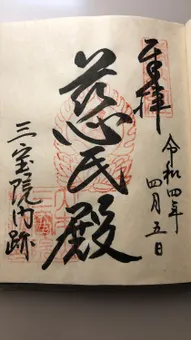 奉拝
令和四年四月五日
慈氏殿
三宝院門跡